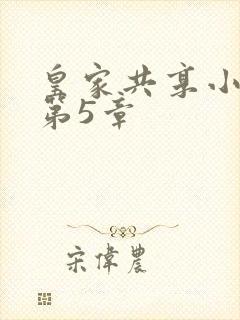 皇家共享小
第5章
宋偉農